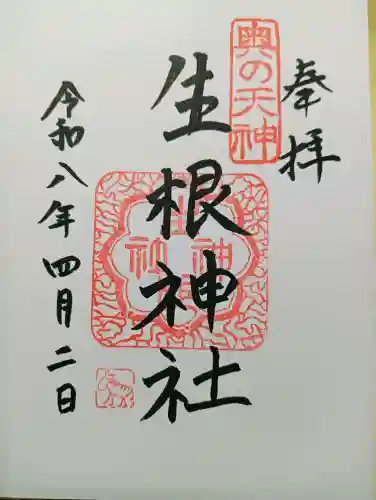 奉拝
奥の天神
生根神社
生根神社
令和八年四月二日